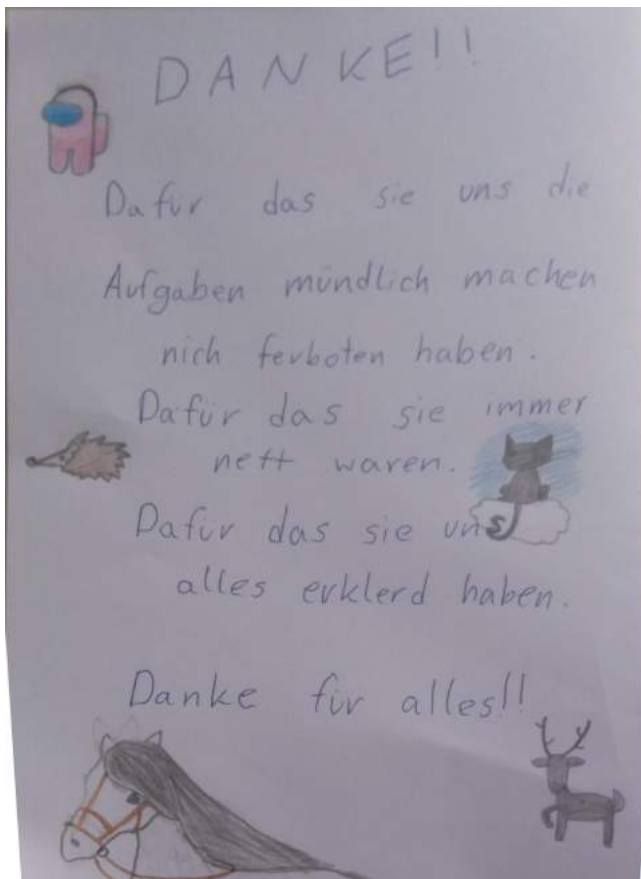 DANKE!!
Dafür das sie uns die
Aufgaben mündlich machen
nich ferboten haben.
Dafür das sie immer
nett waren.
Dafür das sie uns
alles erklerd haben.
Danke für alles!!